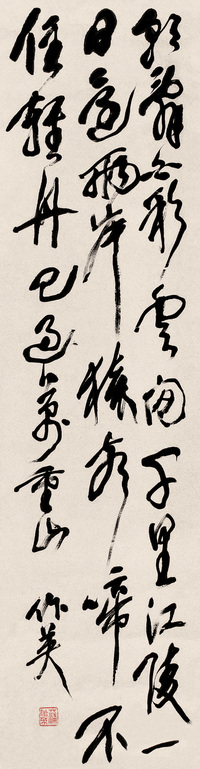 朝辭白彩雲間千里江陵一
日還兩岸猿聲啼不
住輕舟已過萬重山
作英